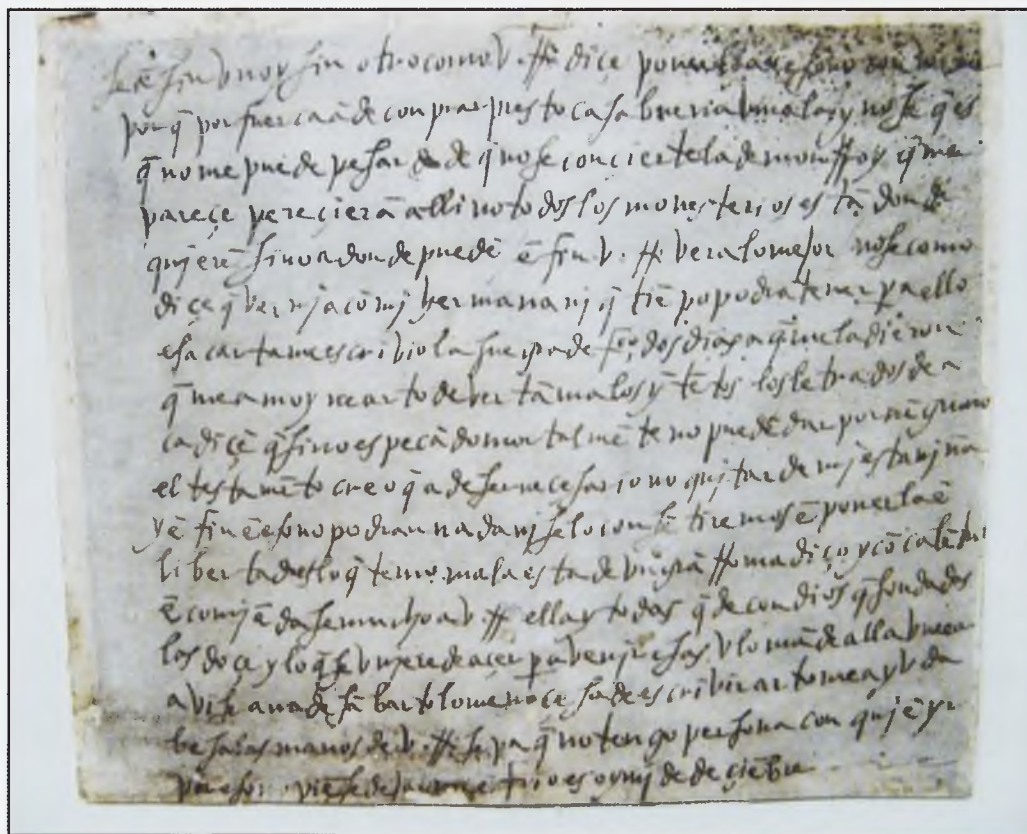 sea sin uno y sin otro como v. m. diçe
porq̄ por fuerça ā de conprar presto casa buena v mala y no se q̄ es
q̄ no me puede pesar de q̄ no se conçierte la de monrroy q̄ me
pareçe pereçierā alli no todos los monesterios estā donde
qujerē sino a donde puedē ē fin v. m. vera lo mejor no se como
diçe q̄ vernja cō mj hermana nj q̄ tiēpo podia tener pa ello
esa carta me escrivio la suegra de frco dos dias a q̄ me la dieron
q̄ me amoyne arto de ver tā malos yntētos los letrados de a
ca diçē q̄ si no es pecādo mortalmēte no puedē dar por nīguno
el testamēto creo q̄ a de ser neçesario no qujtar de mj esta njña
y ē fin ē eso no podran nada nj se lo consētiremos ē ponerla ē
libertad es lo q̄ temo mala esta de vn grā rromadiço y cō calētura
ēcomjēdase mucho a v. m. ella y todas q̄de con dios q̄ son dadas
las doçe y lo q̄ se vujere de açer pa venjr
avise ana de sā bartolome no çesa de escrivir arto me ayuda
besa las manos de v. m. sepa q̄ no tengo persona con qujē yr
es oy iiij de deçiēbre